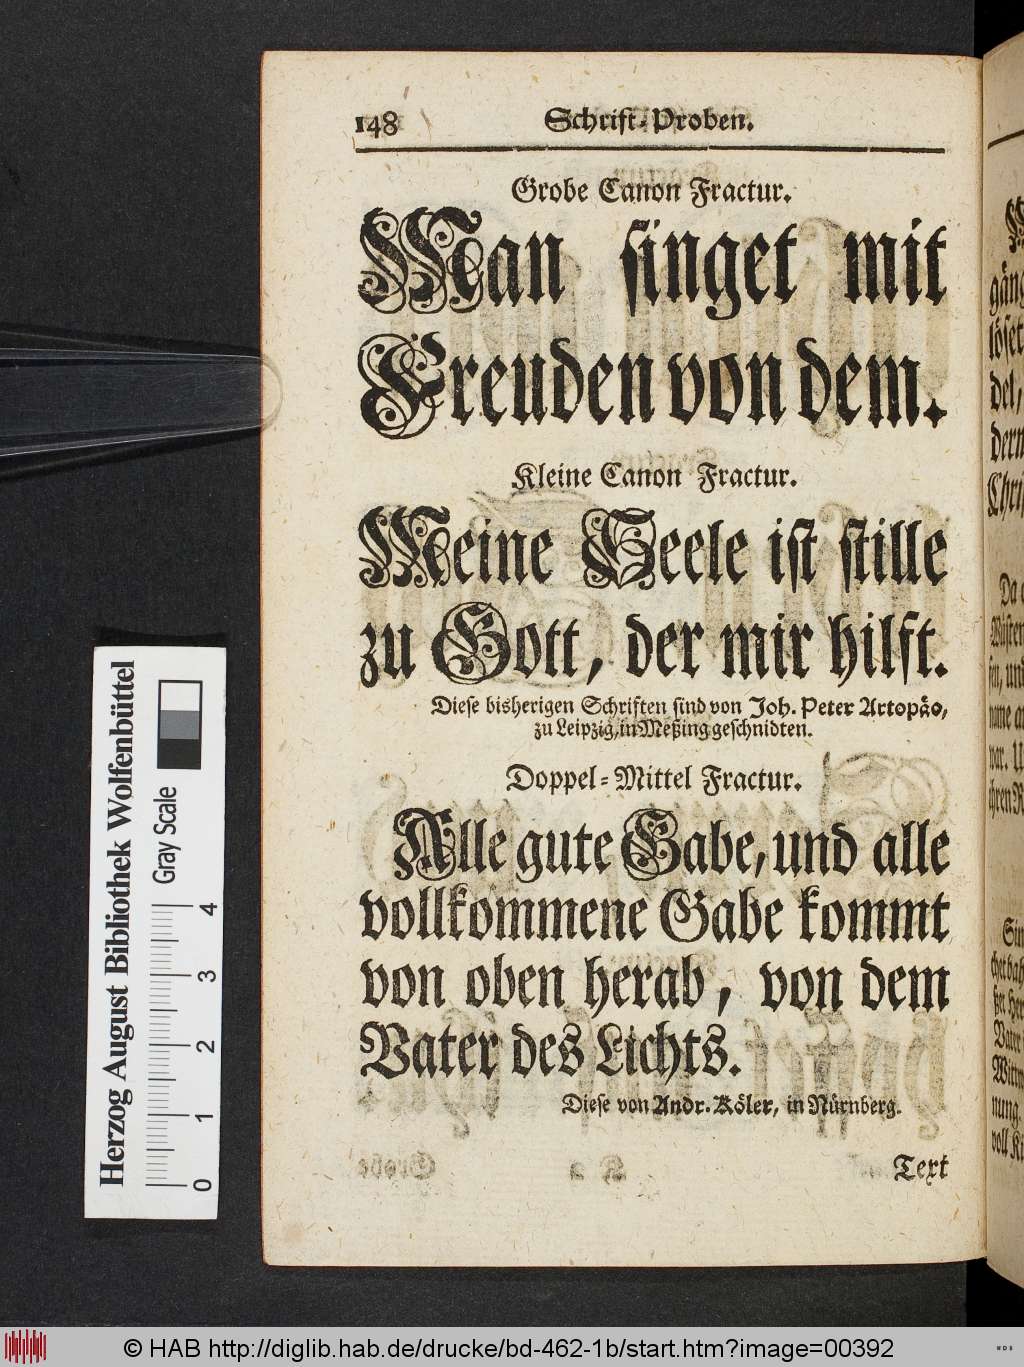 148 Schrift-Proben.
Grobe Canon Fractur.
Man singet mit
Freuden von dem.
Kleine Canon Fractur.
Meine Seele ist stille
zu Gott, der mir hilft.
Diese bisherigen Schriften sind von Joh. Peter Artopäo,
zu Leipzig, in Meßing geschnidten.
Doppel-Mittel Fractur.
Alle gute Gabe, und alle
vollkommene Gabe kommt
von oben herab, von dem
Vater des Lichts.
Diese von Andr. Köler, in Nürnberg.
Text
gäng
löset
del,
Da
Herzog August Bibliothek Wolfenbüttel
Gray Scale
0 1 2 3 4
© HAB http://diglib.hab.de/drucke/bd-462-1b/start.htm?image=00392